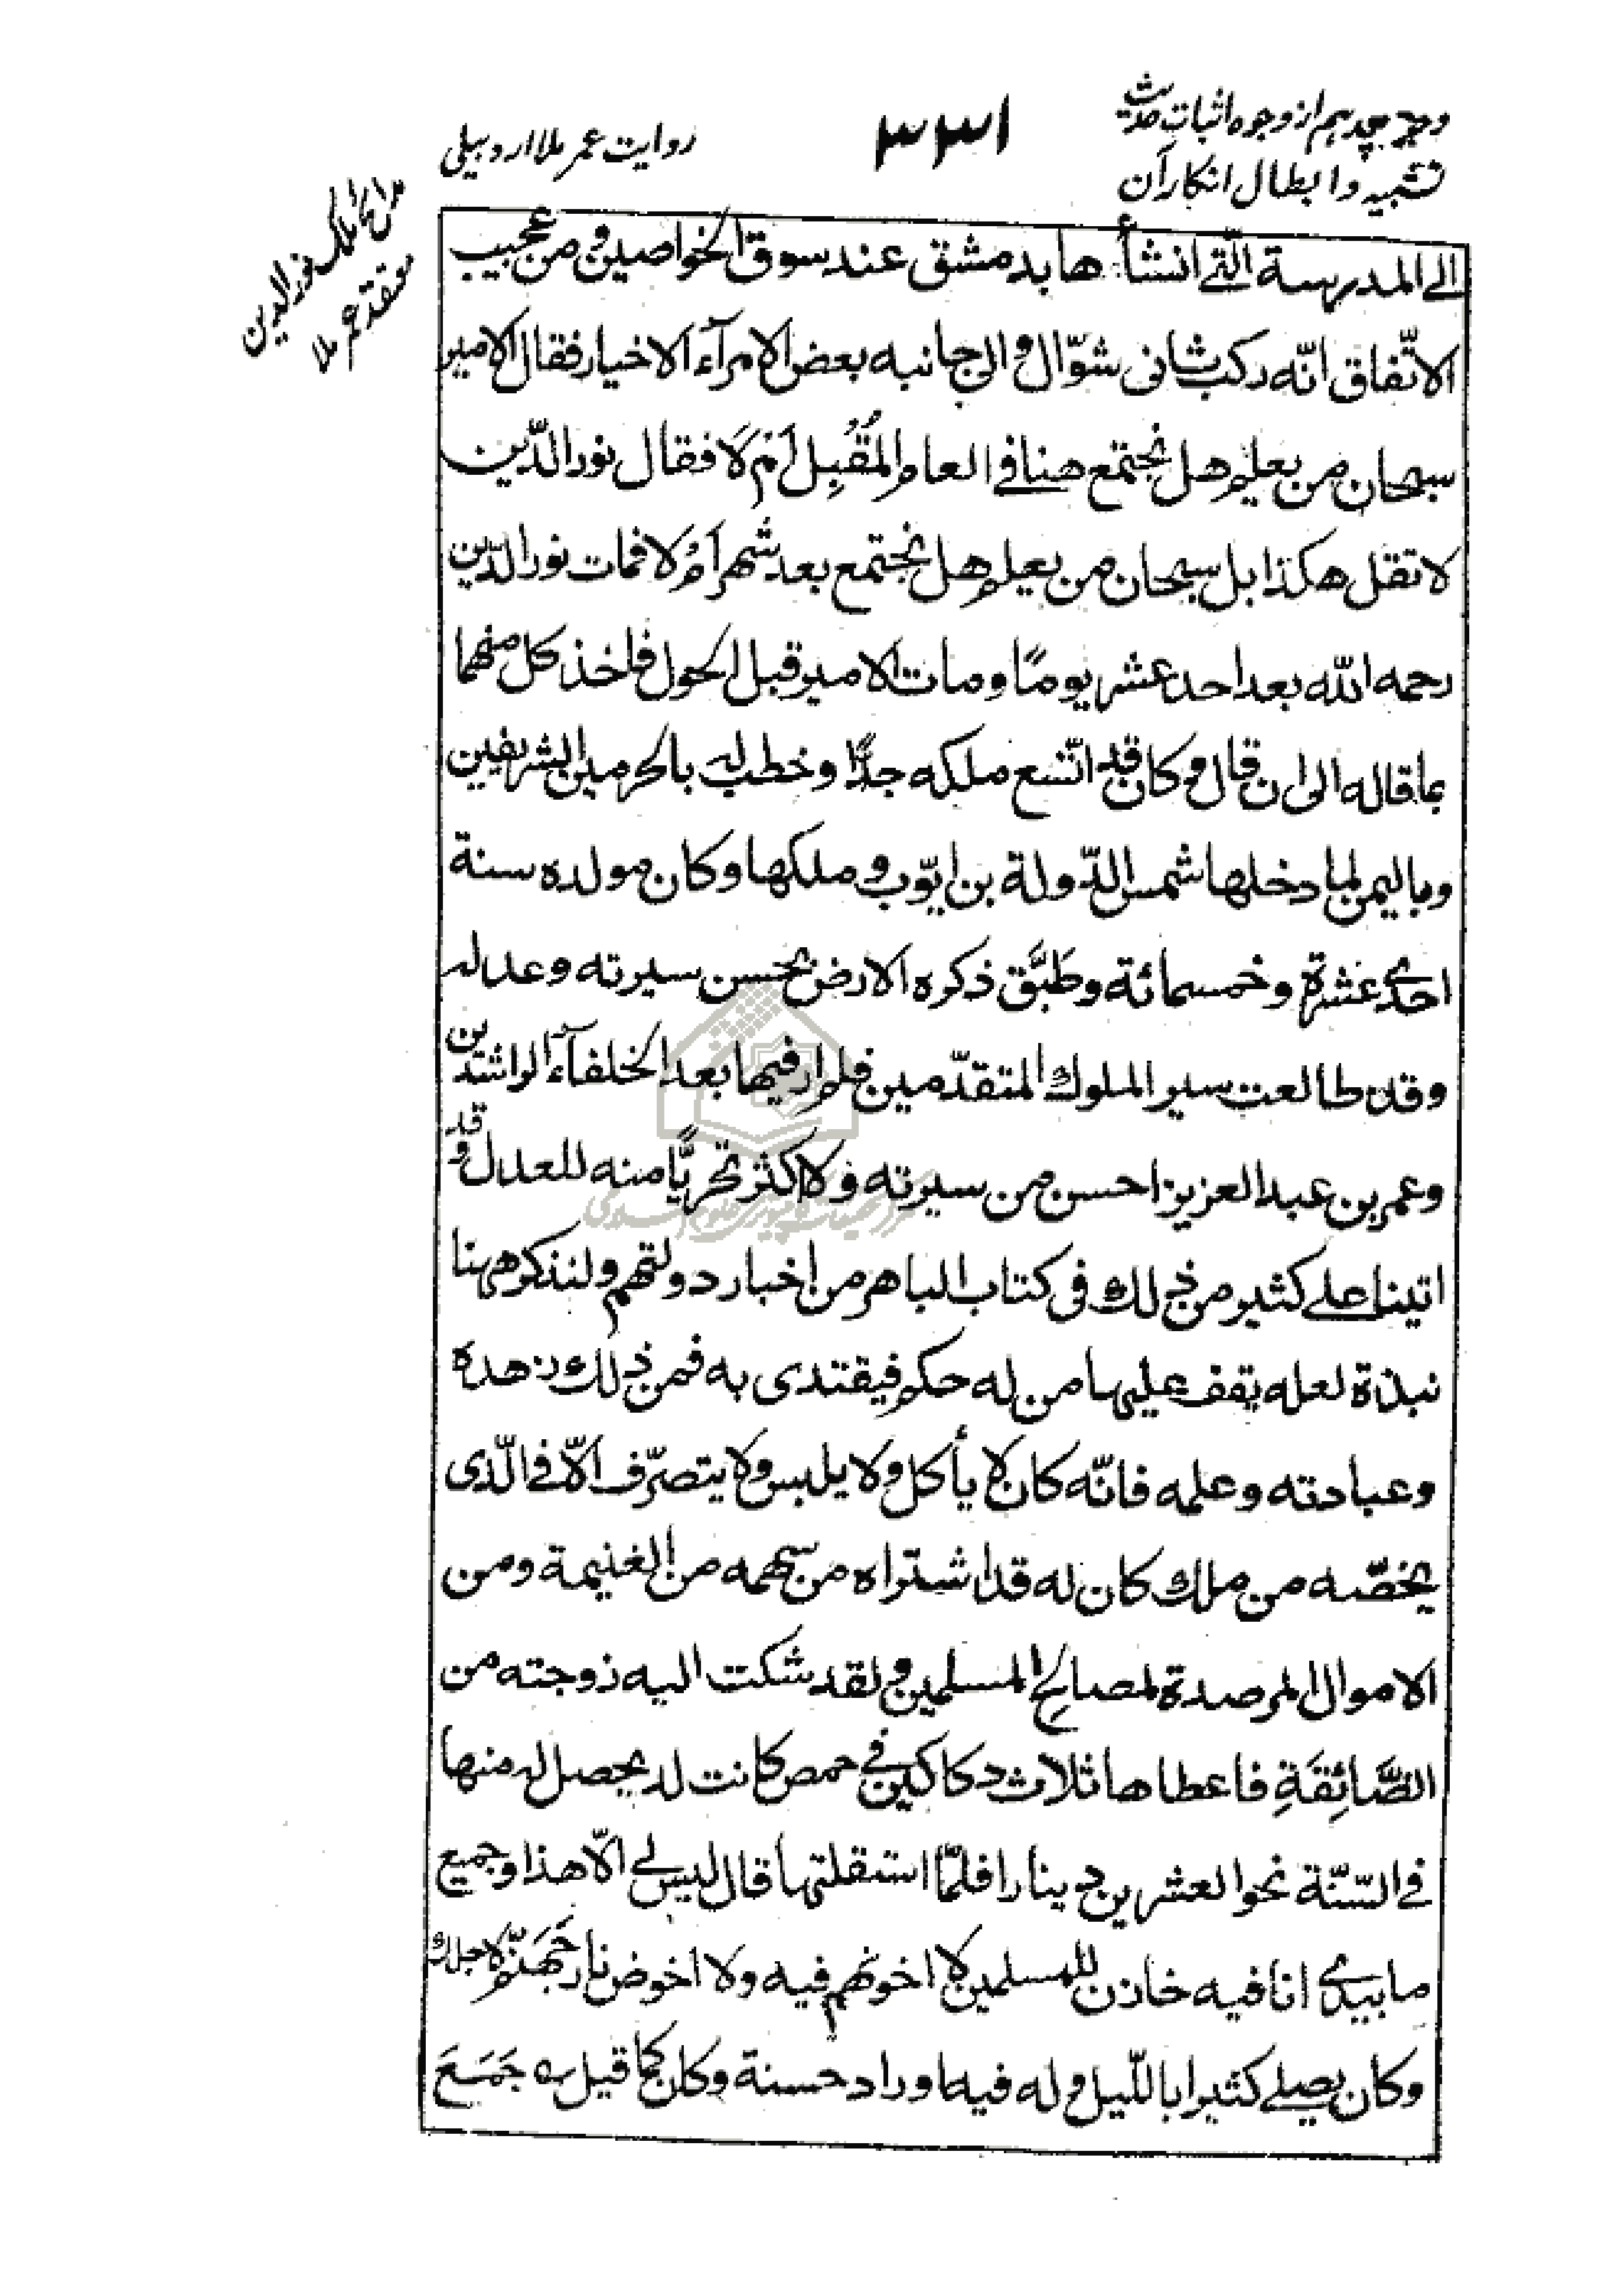 وجه چهاردهم از وجوه اثبات حدیث
تشبیه و ابطال انکار آن
۳۳۱
روایت عمر ملا اردبیلی
مدائح ملک نور الدین
معتقد عمر ملا
الی المدرسة الّتی انشأها بدمشق عند سوق الخواصین و من عجیب
الاتّفاق انّه رکب ثانی شوّال و الی جانبه بعض الامرآء الاخیار فقال الامیر
سبحان من یعلم هل نجتمع هنا فی العام المُقْبِل اَمْ لَا فقال نور الدّین
لا تقل هکذا بل سبحان من یعلم هل نجتمع بعد شهر اَمْ لا فمات نور الدّین
رحمه اللّه بعد احد عشر یومًا و مات الامیر قبل الحول فاخذ کل منهما
بما قاله الی ان قال و کان قد اتّسع ملکه جدًّا و خطب له بالحرمین الشریفین
و بالیمن لما دخلها شمس الدّولة بن ایّوب و ملکها و کان مولده سنة
احدی عشرة و خمسمائة و طَبَّق ذکره الارض بحسن سیرته و عدله
و قد طالعت سیر الملوک المتقدّمین فلم ار فیها بعد الخلفآء الراشدین
و عمر بن عبد العزیز احسن من سیرته و لا اکثر تحرّیًا منه للعدل و قد
اتینا علی کثیر من ذلک فی کتاب الباهر من اخبار دولتهم و لنذکر هیهنا
نبذة لعله یقف علیها من له حکم فیقتدی به فمن ذلک زهده
و عبادته و علمه فانّه کان لا یأکل و لا یلبس و لا یتصرّف الّا فی الّذی
یخصّه من ملک کان له قد اشتراه من سهمه من الغنیمة و من
الاموال المرصدة لمصالح المسلمین و لقد شکت الیه زوجته من
الضَّائِقَةِ فاعطاها ثلاث دکاکین فی حمص کانت له یحصل له منها
فی السّنّة نحو العشرین دینارا فلمّا استقلتها قال لیس لی الّا هذا و جمیع
ما بیدی انا فیه خازن للمسلمین لا اخونهم فیه و لا اخوض نار جَهَنّم لاجلک
و کان یصلی کثیرا باللّیل و له فیه اوراد حسنة و کان کما قیل ؎ جَمَعَ